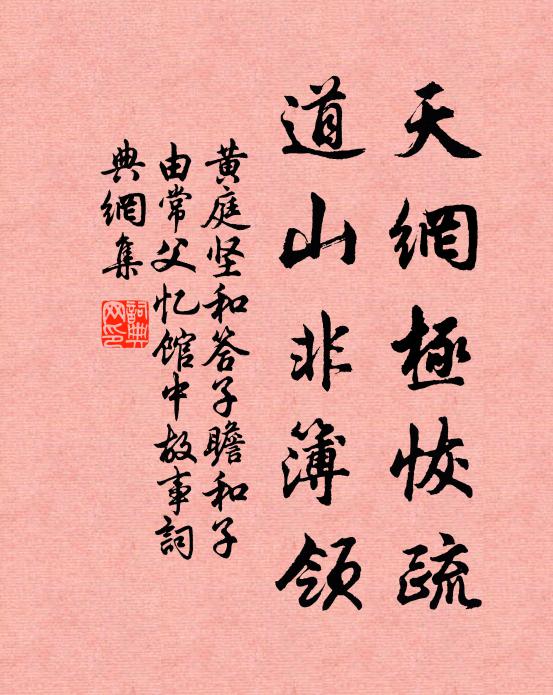 天網極恢疏
道山非簿領
黄庭坚和答子瞻和子
由常父忆馆中故事詞
典網集
詞典
网印